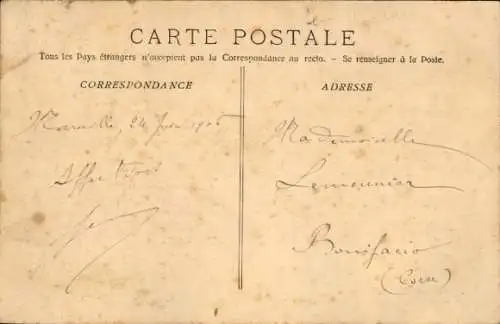 CARTE POSTALE
Tous les Pays étrangers n'acceptent pas la Correspondance au recto. - Se renseigner à la Poste.
CORRESPONDANCE
Marseille, 24 Juin 1906
ADRESSE
Mademoiselle
Lemeunier
Bonifacio
(Corse)